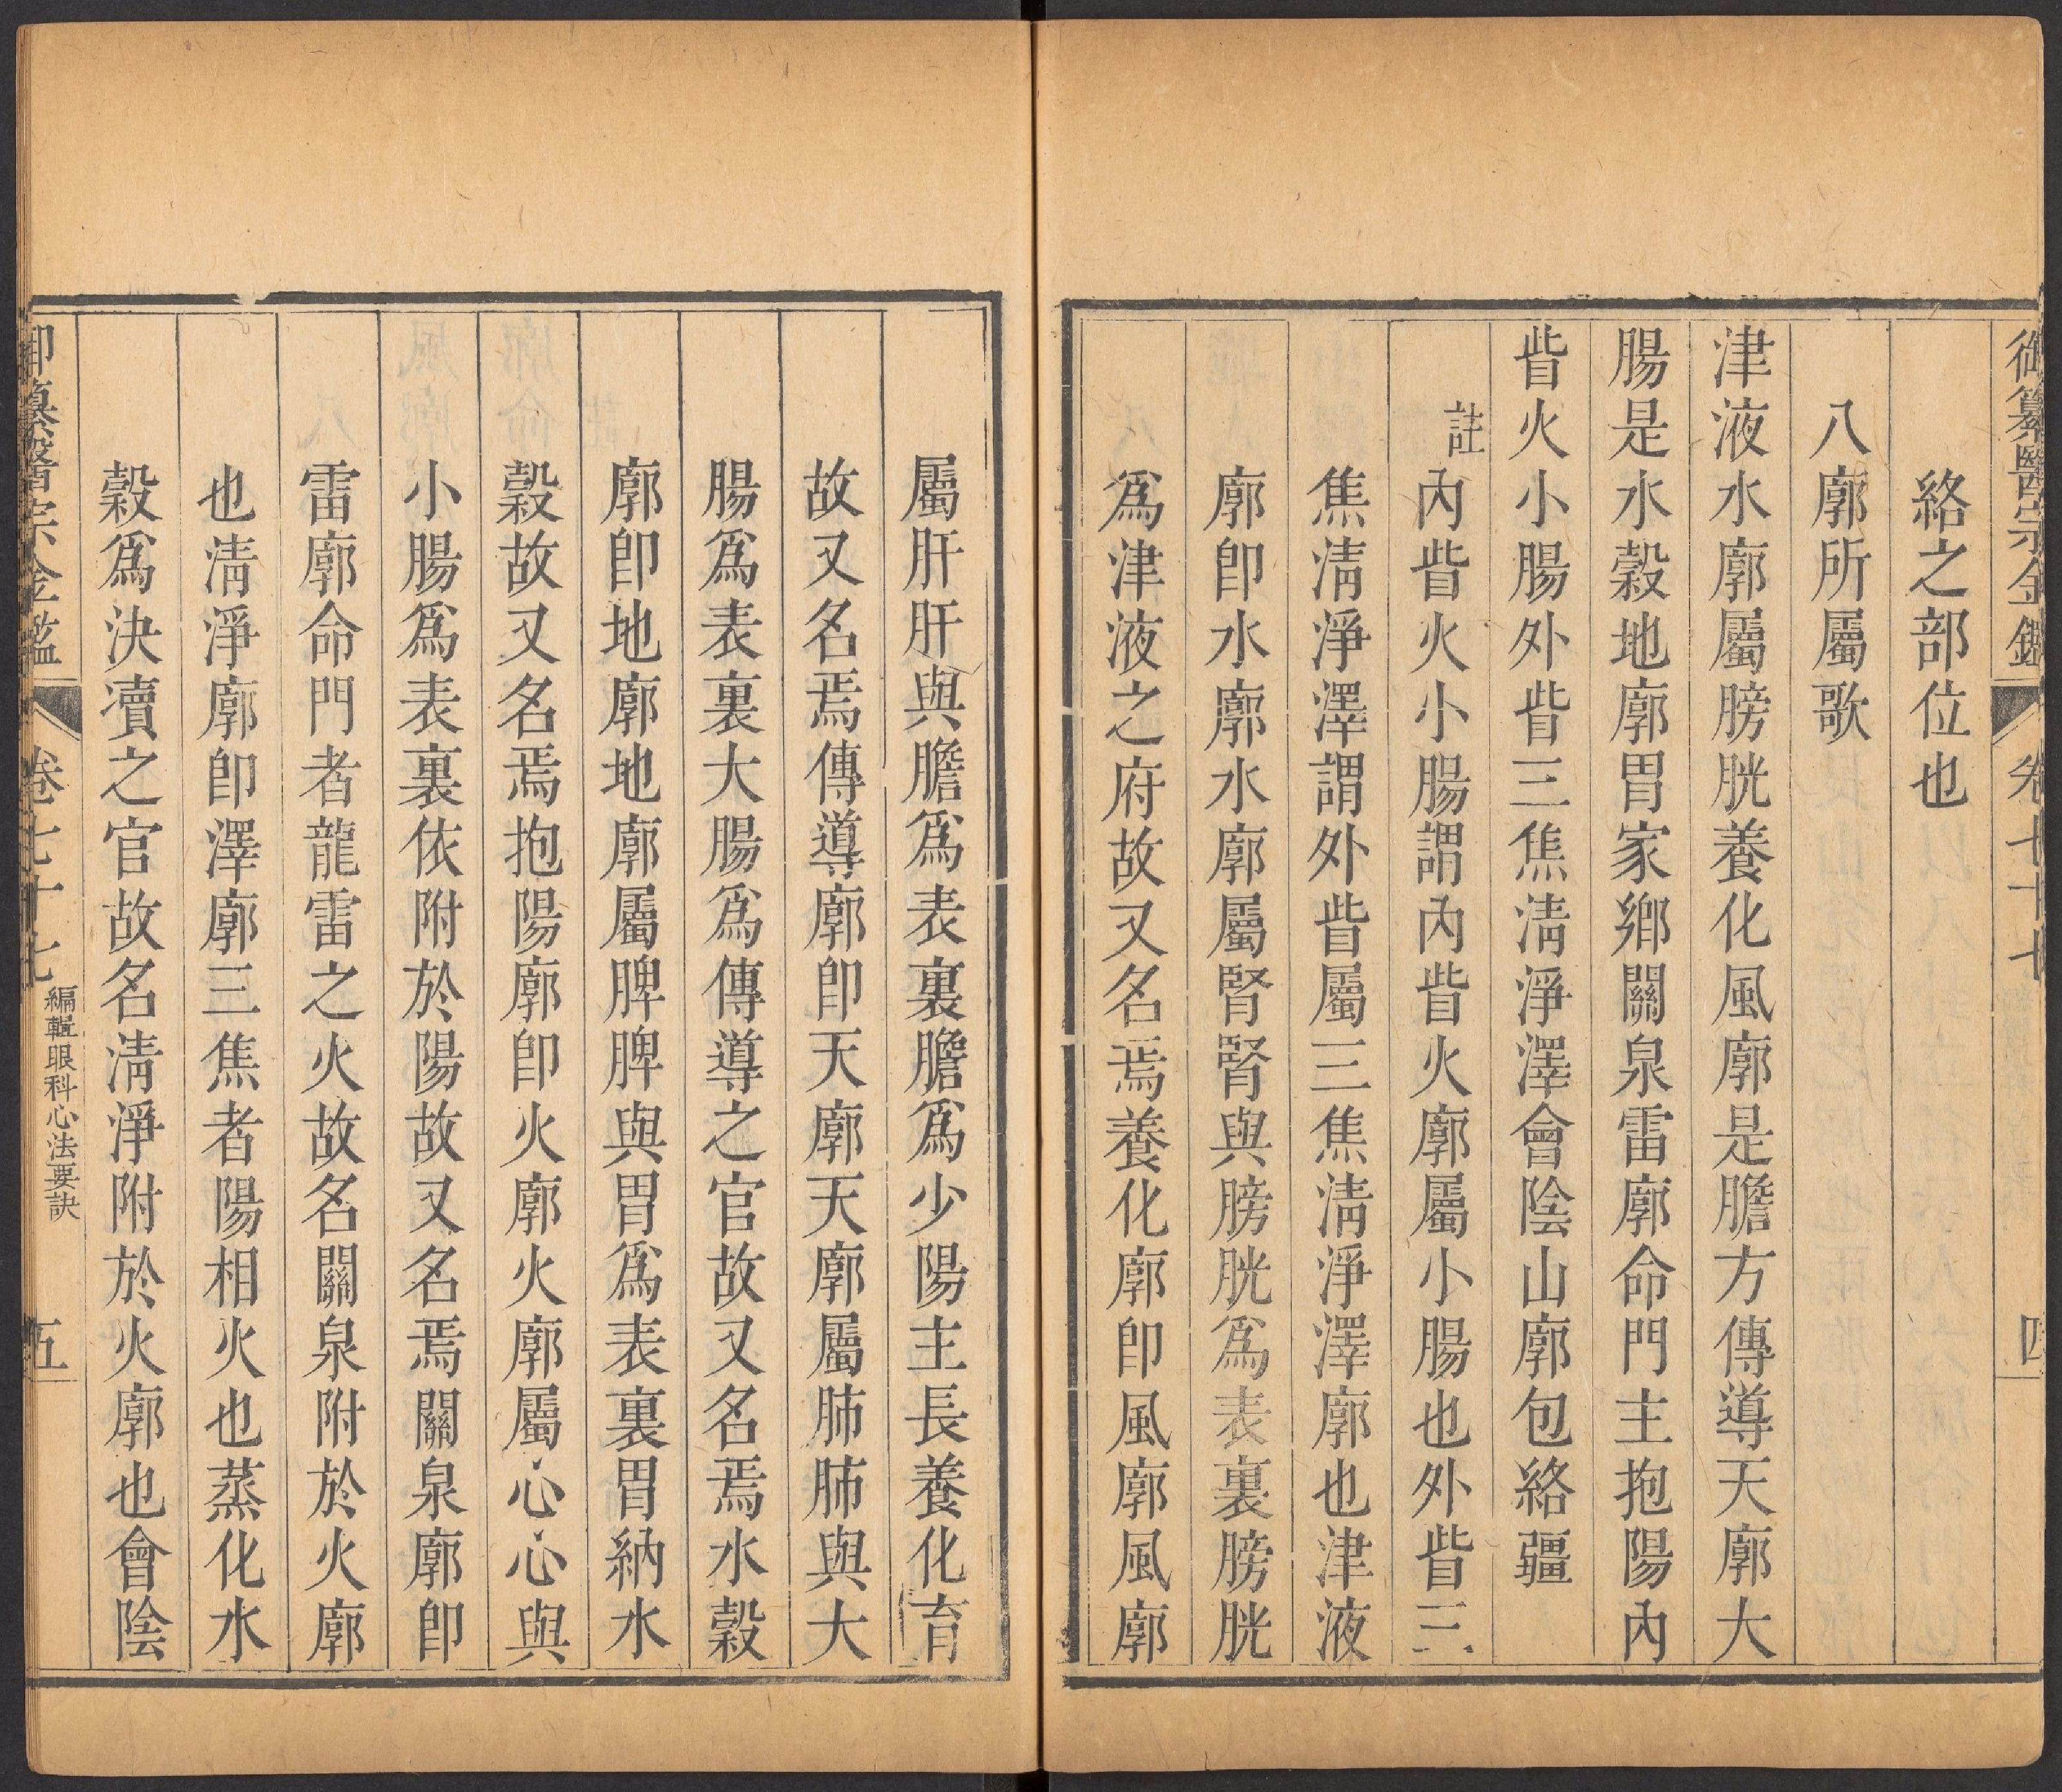 御纂醫宗金鑑 卷七十七 四
絡之部位也
八廓所屬歌
津液水廓屬膀胱養化風廓是膽方傳導天廓大
腸是水穀地廓胃家鄉關泉雷廓命門主抱陽內
眥火小腸外眥三焦淸淨澤會陰山廓包絡疆
註內眥火小腸謂內眥火廓屬小腸也外眥三
焦淸淨澤謂外眥屬三焦淸淨澤廓也津液
廓卽水廓水廓屬腎腎與膀胱爲表裏膀胱
爲津液之府故又名焉養化廓卽風廓風廓
屬肝肝與膽爲表裏膽爲少陽主長養化育
故又名焉傳導廓卽天廓天廓屬肺肺與大
腸爲表裏大腸爲傳導之官故又名焉水穀
廓卽地廓地廓屬脾脾與胃爲表裏胃納水
穀故又名焉抱陽廓卽火廓火廓屬心心與
小腸爲表裏依附於陽故又名焉關泉廓卽
雷廓命門者龍雷之火故名關泉附於火廓
也淸淨廓卽澤廓三焦者陽相火也蒸化水
穀爲決瀆之官故名淸淨附於火廓也會陰
御纂醫宗金鑑 卷七十七 編輯眼科心法要訣 五